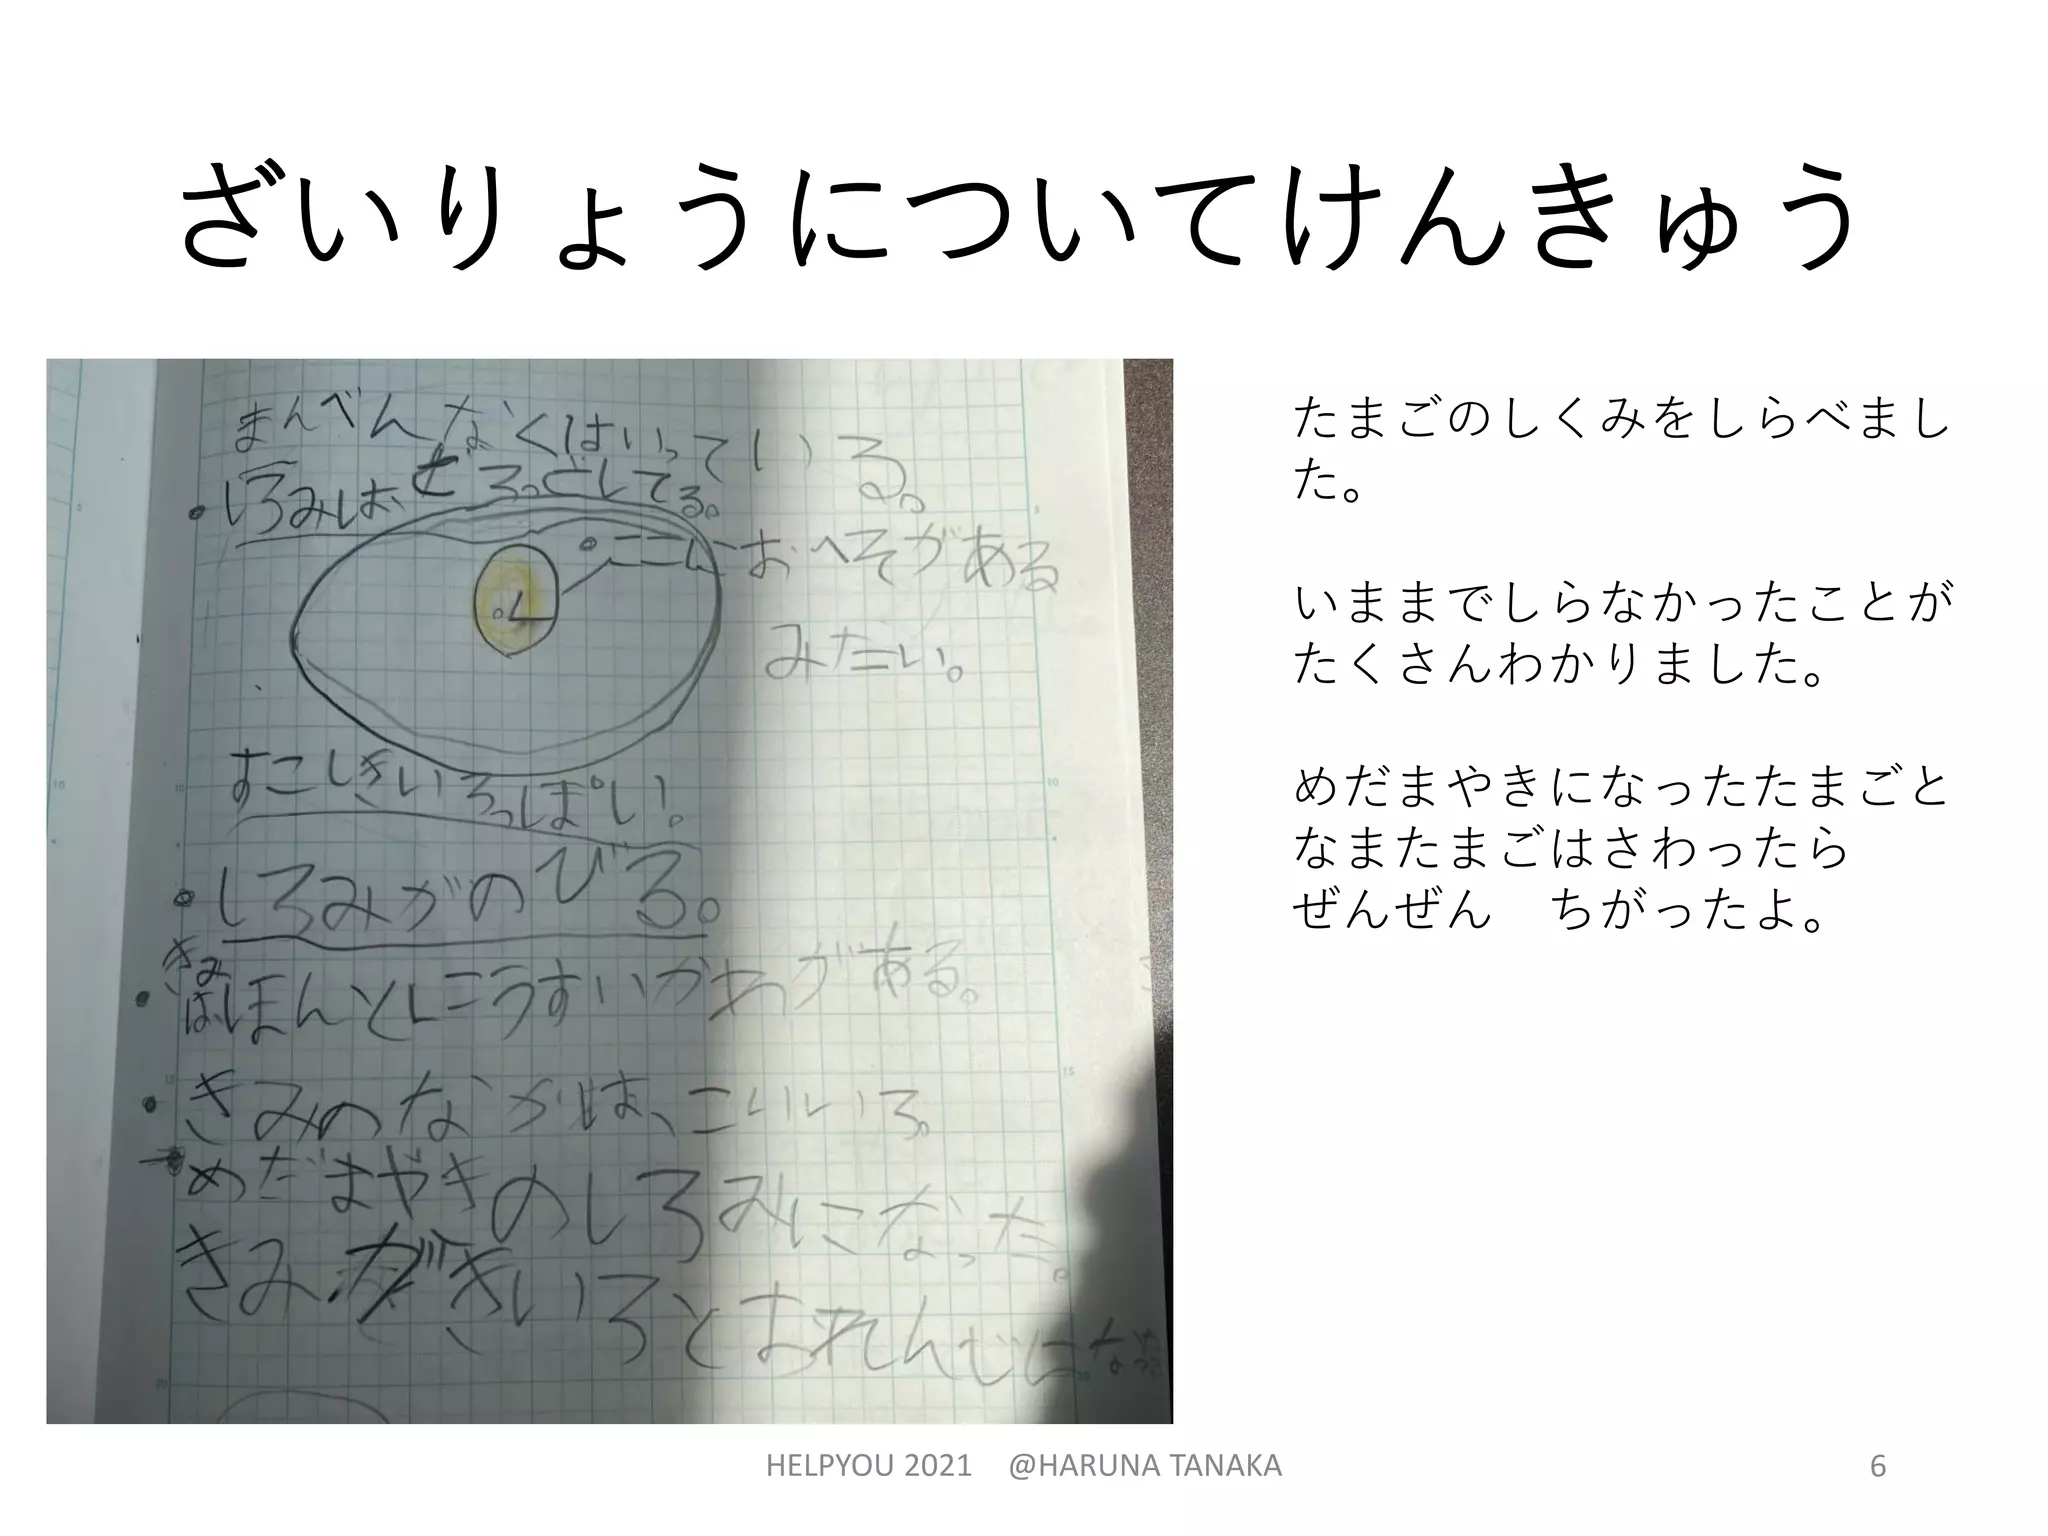 ざいりょうについてけんきゅう
まんべんなくはいっている。
・しろみは、どろっとしてる。
ここにおへそがある
みたい。
すこしきいろっぽい。
・しろみがのびる。
・きみは、ほんとにこうすいかわがある。
・きみのなかは、こいいろ。
めだまやきのしろみになった。
きみがきいろとおれんじにな
たまごのしくみをしらべまし
た。
いままでしらなかったことが
たくさんわかりました。
めだまやきになったたまごと
なまたまごはさわったら
ぜんぜん　ちがったよ。
HELPYOU 2021　@HARUNA TANAKA
6